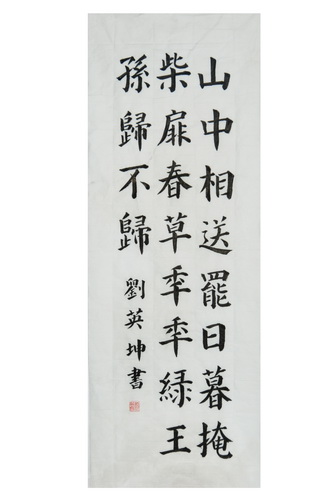 山中相送罷日暮掩
柴扉春草年年緑王
孫歸不歸
劉英坤書